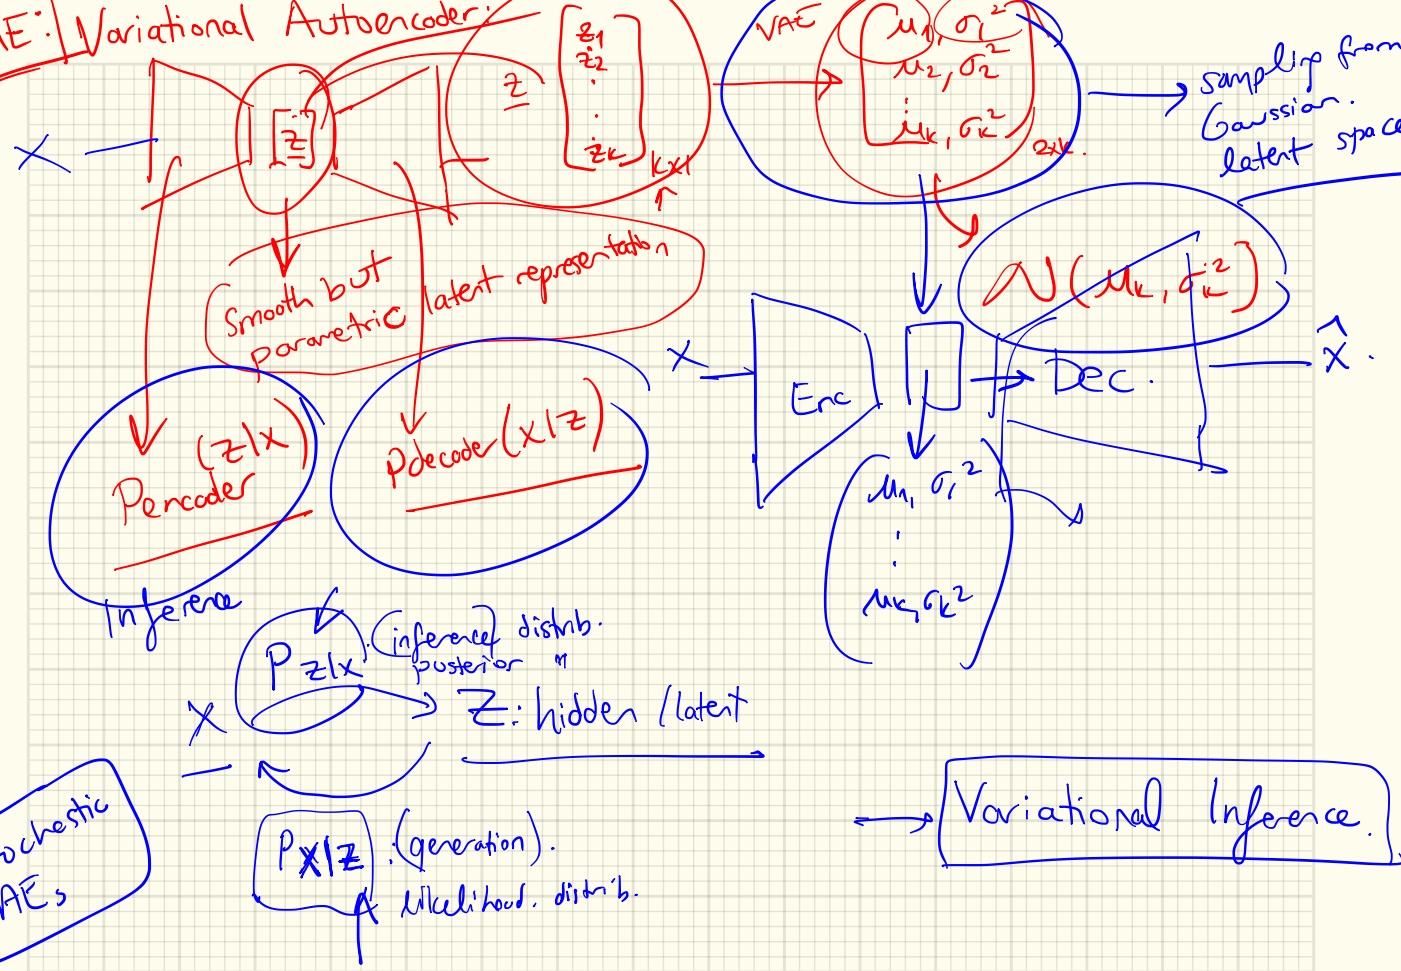 AE: Variational Autoencoder:
X
[z]
z
z1
z2
.
.
zk
kx1
VAE
μ1, σ1²
μ2, σ2²
.
μk, σk²
2xk.
sampling from
Gaussian.
latent space
Smooth but
parametric latent representation
N(μk, σk²)
(z|x)
Pencoder
Pdecoder(x|z)
X
Enc
Dec.
x̂.
μ1, σ1²
.
.
μk, σk²
Inference
Pz|x. (inference) distrib.
posterior "
X
Z: hidden/latent
Px|z. (generation).
likelihood. distrib.
ochastic
AEs
Variational Inference.